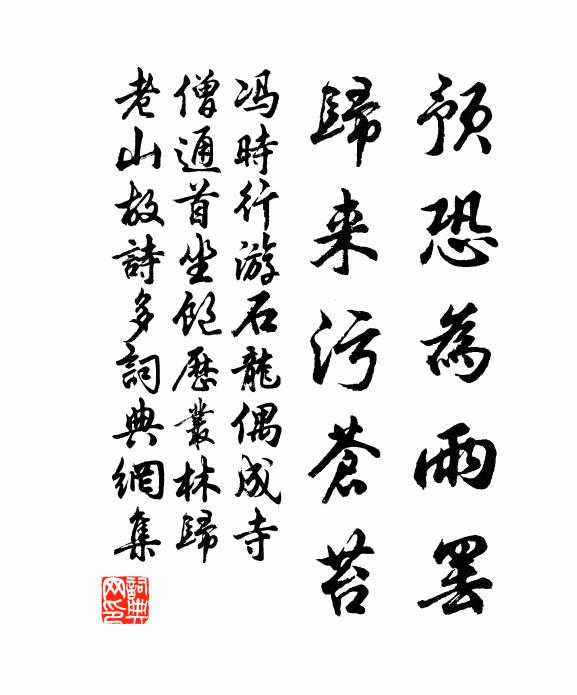 預恐為雨罢
歸来污蒼苔
冯時行游石龍偶成寺
僧通首坐飽歷叢林歸
老山故詩多詞典網集
詞典网印